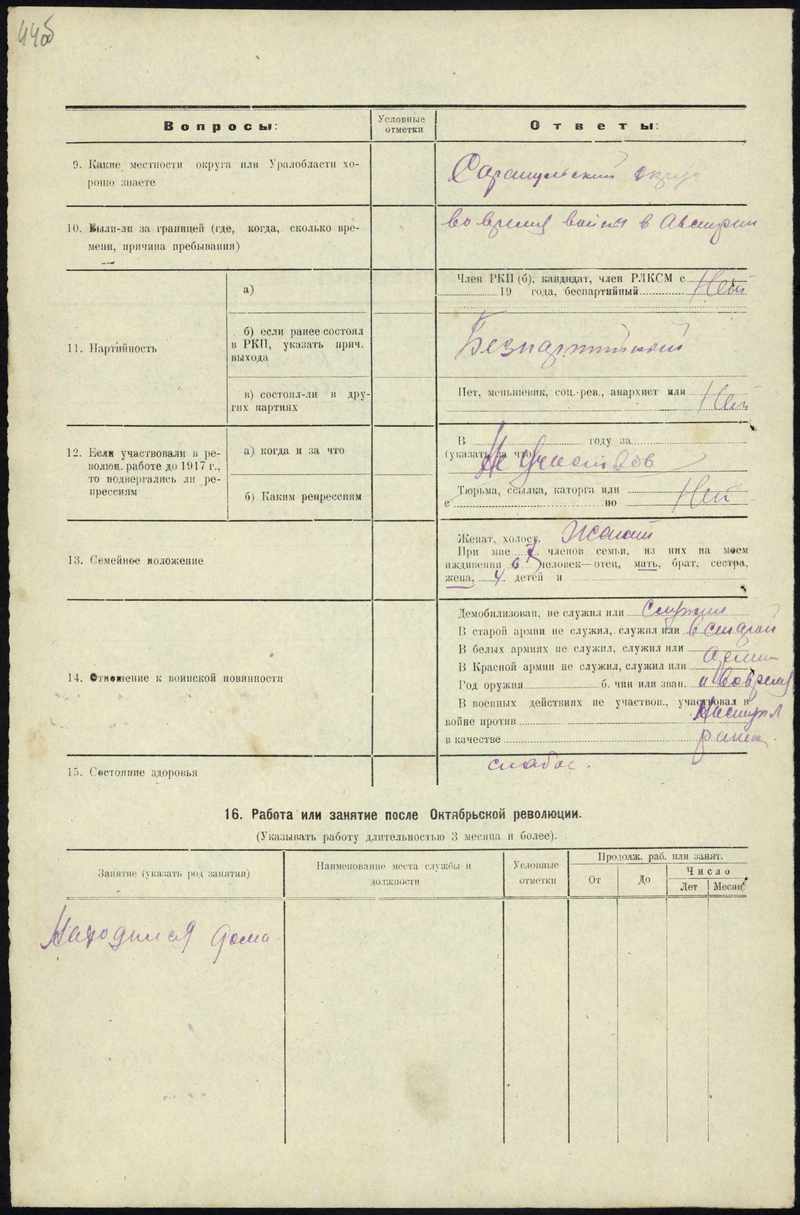 44об
Вопросы:
Условные
отметки
Ответы:
9. Какие местности округа или Уралобласти хо-
рошо знаете
Сарапульский округ
10. Были-ли за границей (где, когда, сколько вре-
мени, причина пребывания)
во время войны в Австрии
11. Партийность
а)
Член РКП (б), кандидат, член РЛКСМ с
19 года, беспартийный Нет
б) если ранее состоял
в РКП, указать прич.
выхода
Безпартийный
в) состоял-ли в дру-
гих партиях
Нет, меньшевик, соц.-рев., анархист или Нет
12. Если участвовали в ре-
волюц. работе до 1917 г.,
то подвергались ли ре-
прессиям
а) когда и за что
В году за
(указать за что)
Не Участвов
б) Каким репрессиям
Тюрьма, ссылка, каторга или Нет
с по
13. Семейное положение
Женат, холост. Женат
При мне 7 членов семьи, из них на моем
иждивении 6 человек—отец, мать, брат, сестра,
жена, 4 детей и
14. Отношение к воинской повинности
Демобилизован, не служил или Служил
В старой армии не служил, служил или в старой
В белых армиях не служил, служил или армии
В Красной армии не служил, служил или
Род оружия б. чин или зван. и во время
В военных действиях не участвов., участвовал в
войне против
в качестве
15. Состояние здоровья
слабое.
16. Работа или занятие после Октябрьской революции.
(Указывать работу длительностью 3 месяца и более).
Занятие (указать род занятия)
Наименование места службы и
должности
Условные
отметки
Продолж. раб. или занят.
От
До
Число
Лет
Месяц
Находился дома